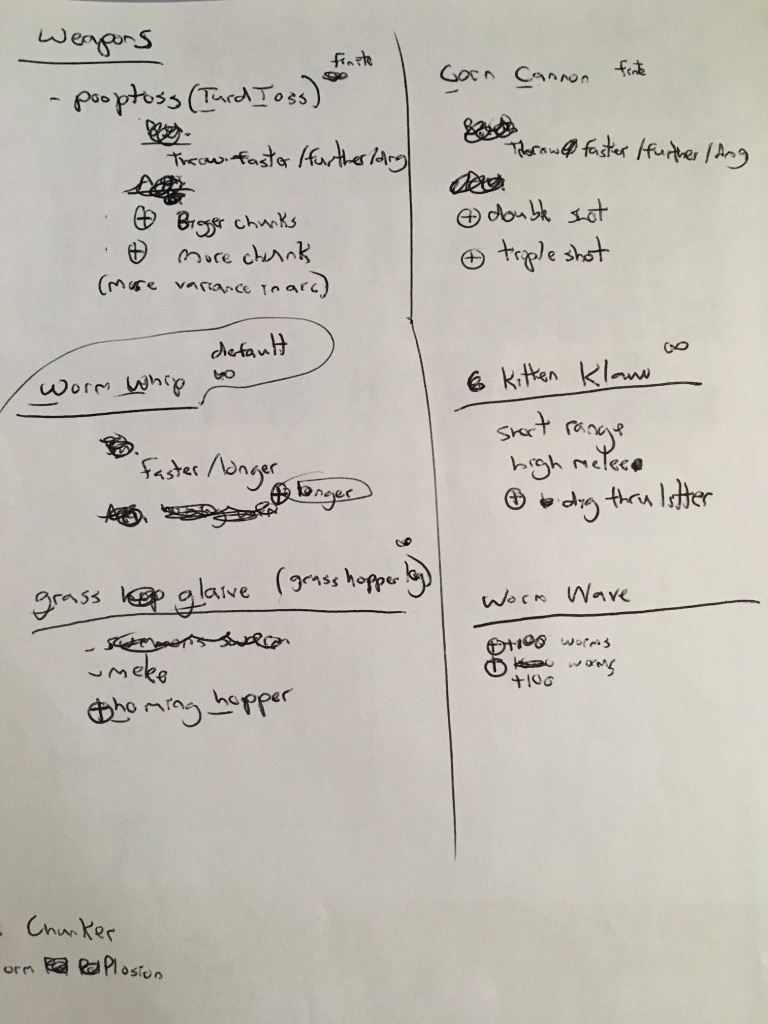 Weapons
finite
- pooptoss (Turd Toss)
Throw faster/further/dmg
⊕ Bigger chunks
⊕ more chunk
(more variance in arc)
default
∞
Worm Whip
faster/longer
⊕ longer
∞
grass glaive (grasshopper leg)
- melee
⊕ homing hopper
Chunker
orm Plosion
Corn Cannon finite
Throw faster/further/dmg
⊕ double shot
⊕ triple shot
∞
Kitten Klaw
short range
high melee
⊕ dig thru litter
Worm Wave
⊕ +100 worms
⊕ worms
+100